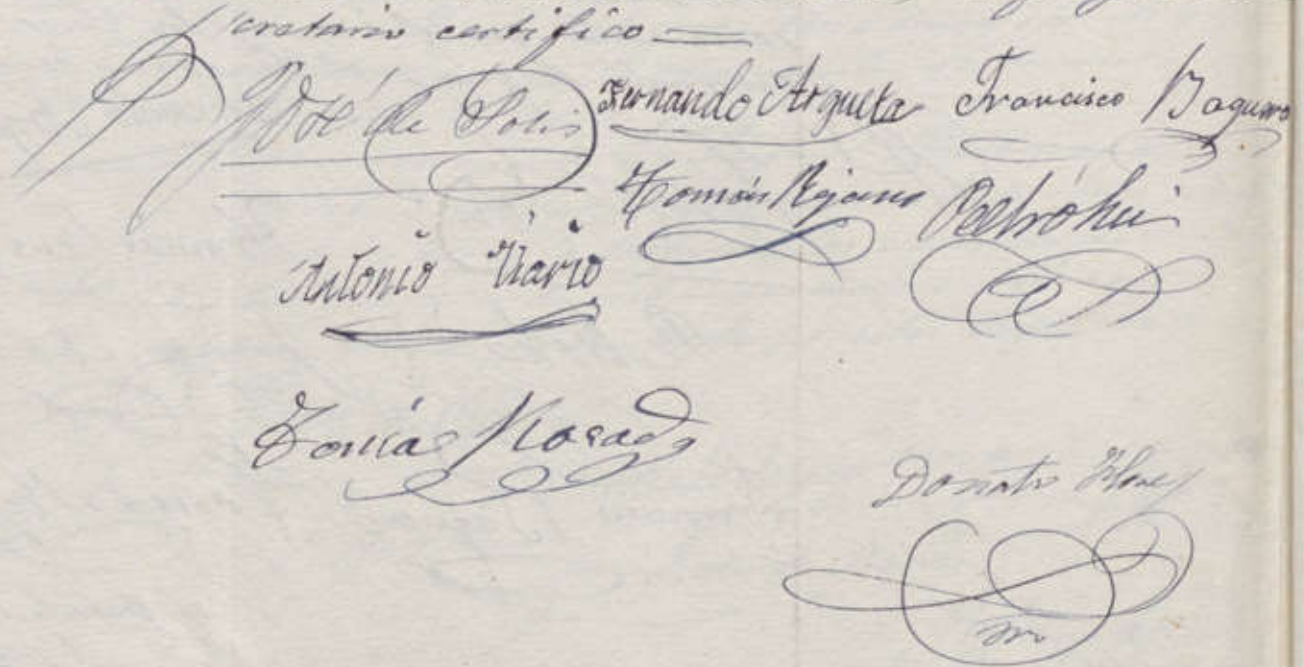 cretario certifico
José de Solis Fernando Argueta Francisco Baquero
Tomás Rejano
Antonio
Tomás Rosado
Donato